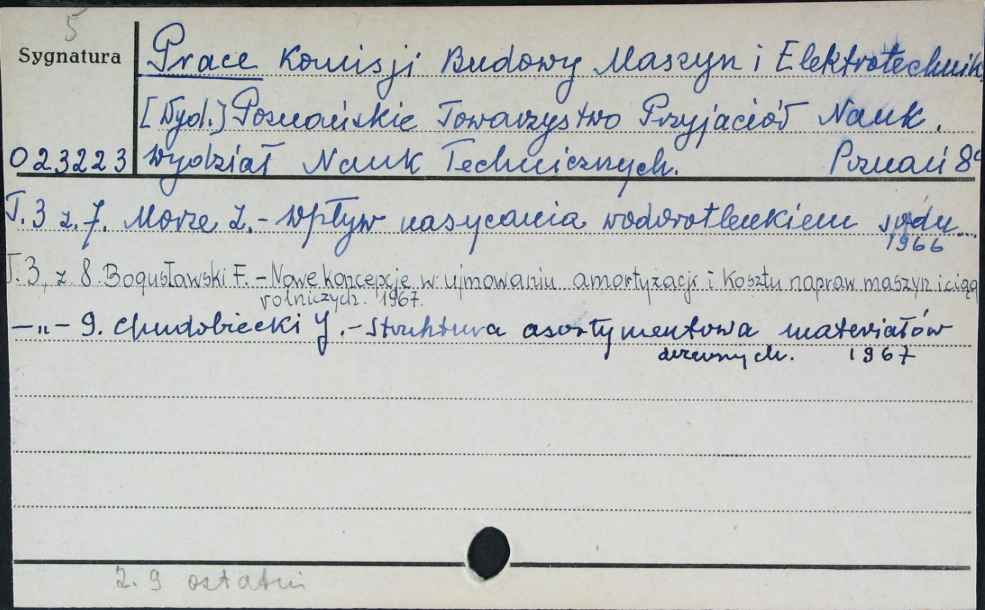 5
Sygnatura
Prace Komisji Budowy Maszyn i Elektrotechnik
[Wyd.] Poznańskie Towarzystwo Przyjaciół Nauk.
023223 Wydział Nauk Technicznych. Poznań 8°
T.3 z.7. Morze Z. - Wpływ nasycania wodorotlenkiem sodu...
1966
T.3, z 8. Bogusławski F. - Nowe koncepcje w ujmowaniu amortyzacji i kosztu napraw maszyn i ciąg
rolniczych. 1967.
-"- 9. Chudobiecki J. - Struktura asortymentowa materiałów
drzewnych. 1967
z. 9 ostatni